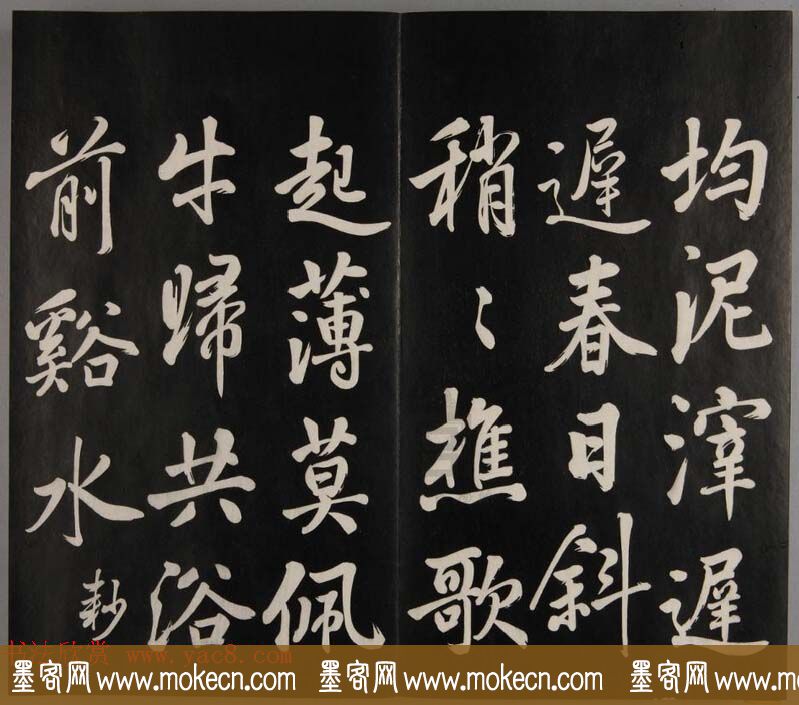 均泥滓遲
遲春日斜
稍〻樵歌
起薄莫佩
牛歸共浴
前谿水
耖
书法欣赏 www.yac8.com
墨客网www.mokecn.com 墨客网www.mokecn.com 墨客网www.mo